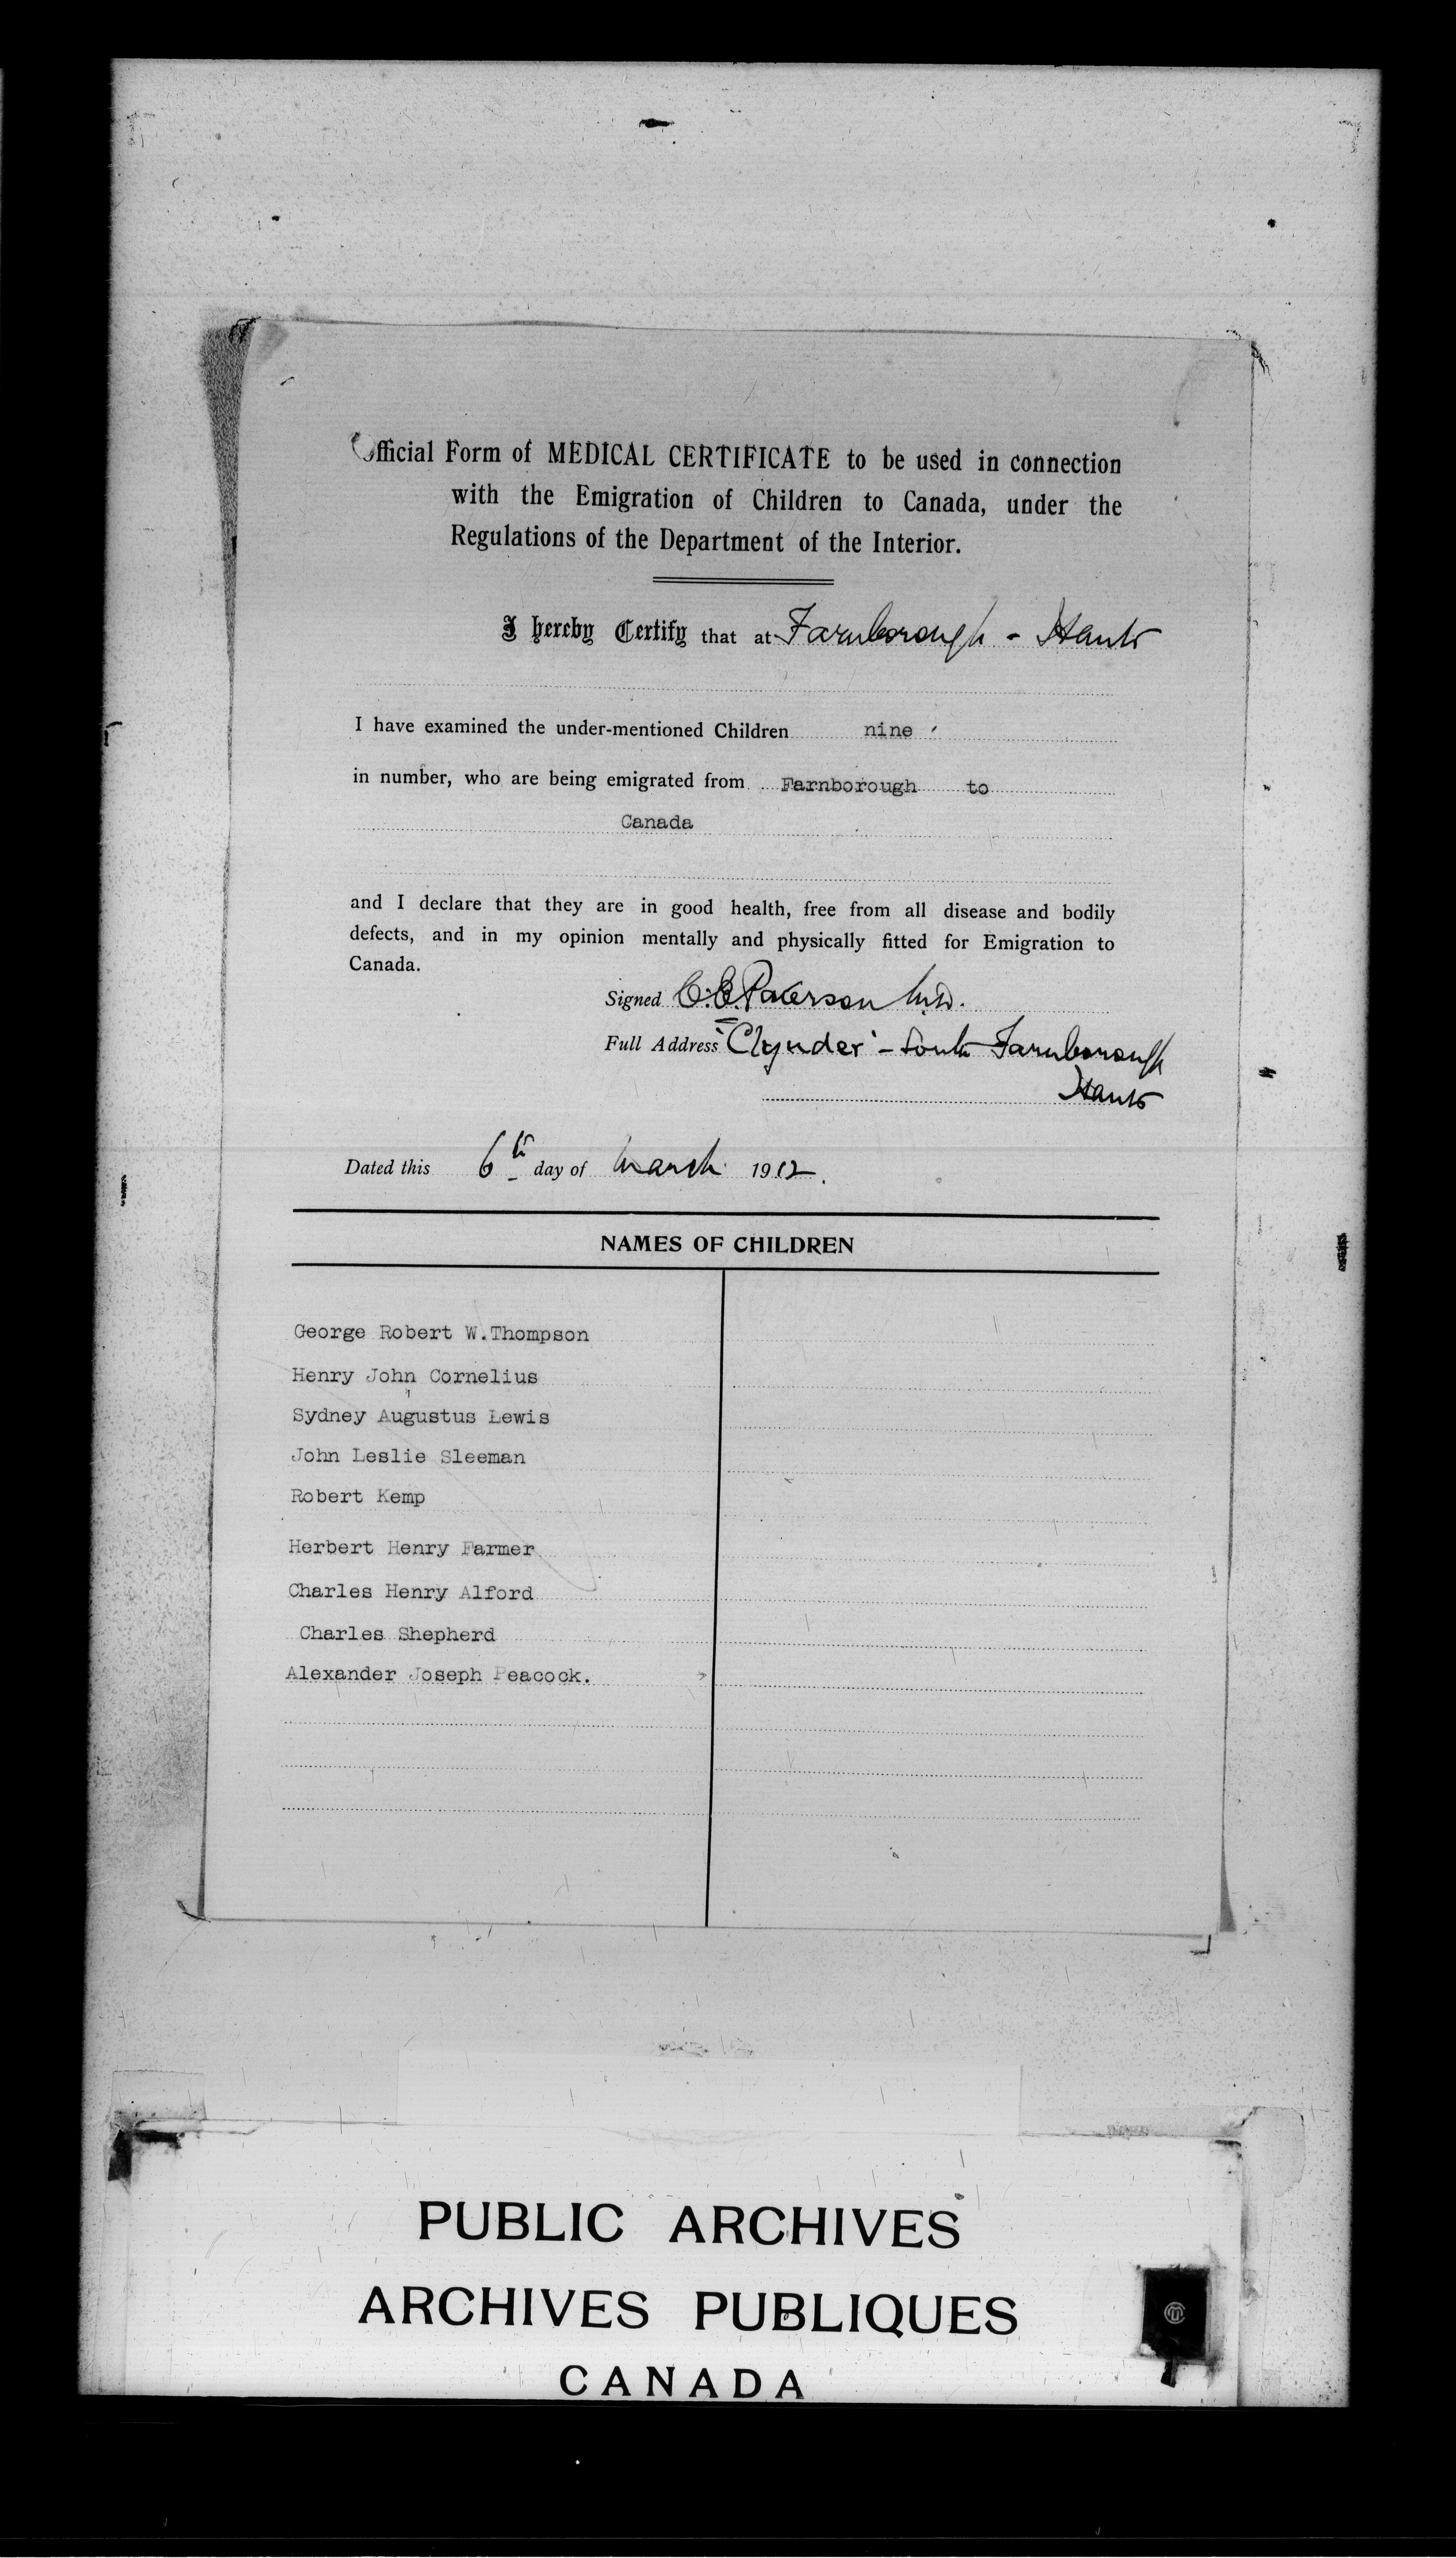 Official Form of MEDICAL CERTIFICATE to be used in connection
with the Emigration of Children to Canada, under the
Regulations of the Department of the Interior.
I hereby Certify that at Farnborough - Hants
I have examined the under-mentioned Children nine
in number, who are being emigrated from Farnborough to
Canada
and I declare that they are in good health, free from all disease and bodily
defects, and in my opinion mentally and physically fitted for Emigration to
Canada.
Signed C. E. Paterson M.D.
Full Address "Clynder" - South Farnborough
Hants
Dated this 6th day of March 1912.
NAMES OF CHILDREN
George Robert W.Thompson
Henry John Cornelius
Sydney Augustus Lewis
John Leslie Sleeman
Robert Kemp
Herbert Henry Farmer
Charles Henry Alford
Charles Shepherd
Alexander Joseph Peacock.
PUBLIC ARCHIVES
ARCHIVES PUBLIQUES
CANADA